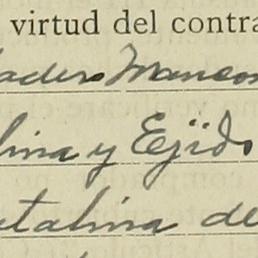 virtud del contra
adero Mancom
lina y Ejido
atalina de